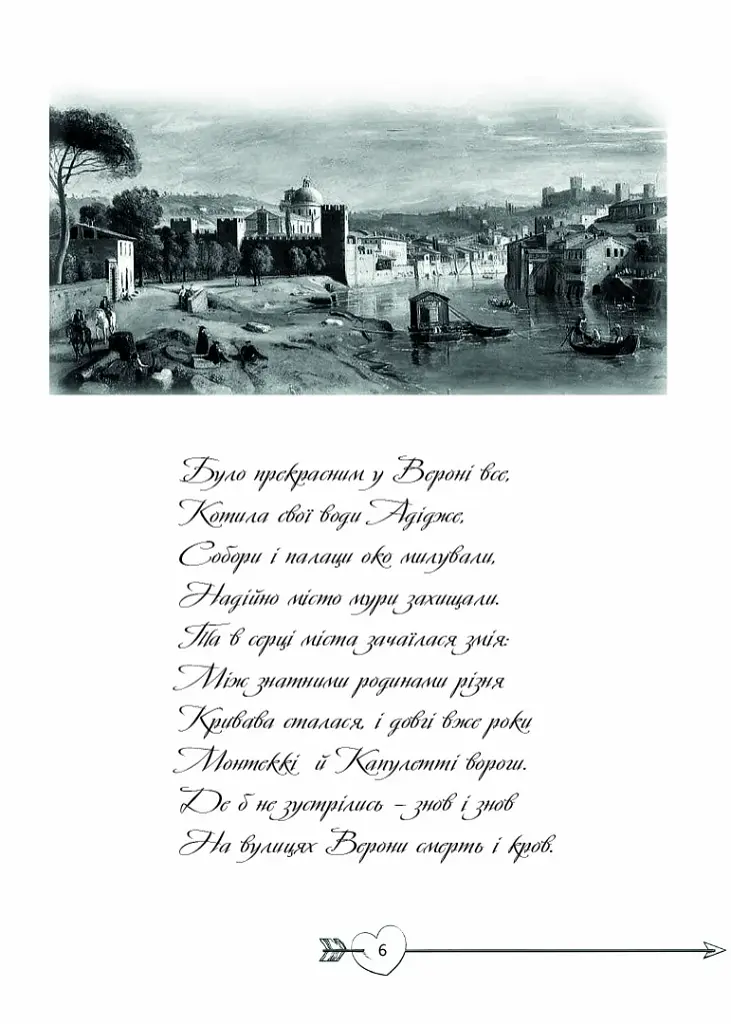 Було прекрасним у Вероні все,
Котила свої води Адідже,
Собори і палаци око милували,
Надійно місто мури захищали.
Та в серці міста зачаїлася змія:
Між знатними родинами різня
Кривава сталася, і довгі вже роки
Монтеккі й Капулетті вороги.
Де б не зустрілись – знов і знов
На вулицях Верони смерть і кров.
6